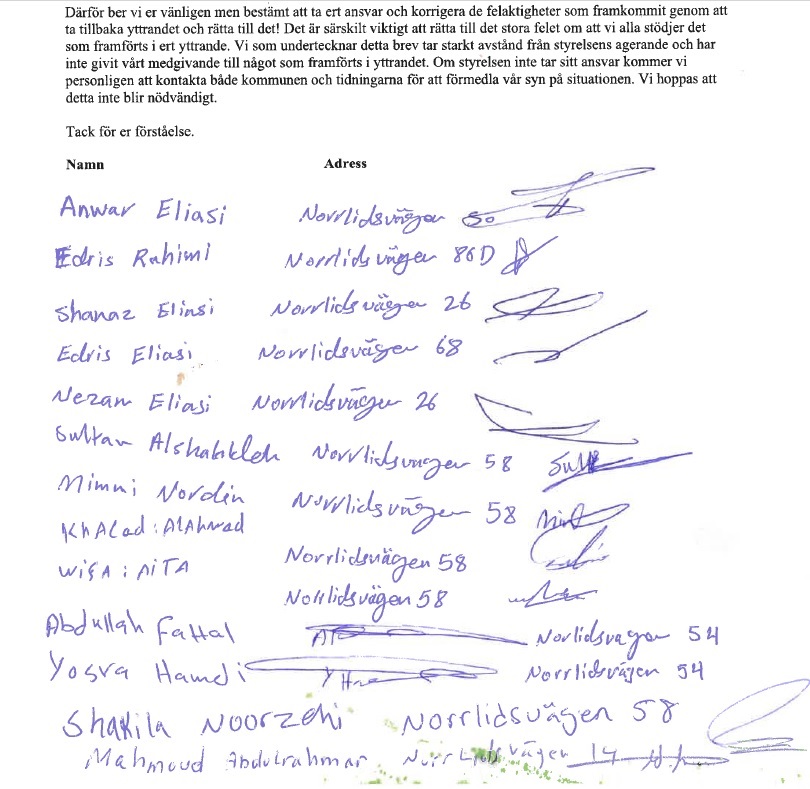 Därför ber vi er vänligen men bestämt att ta ert ansvar och korrigera de felaktigheter som framkommit genom att
ta tillbaka yttrandet och rätta till det! Det är särskilt viktigt att rätta till det stora felet om att vi alla stödjer det
som framförts i ert yttrande. Vi som undertecknar detta brev tar starkt avstånd från styrelsens agerande och har
inte givit vårt medgivande till något som framförts i yttrandet. Om styrelsen inte tar sitt ansvar kommer vi
personligen att kontakta både kommunen och tidningarna för att förmedla vår syn på situationen. Vi hoppas att
detta inte blir nödvändigt.
Tack för er förståelse.
Namn Adress
Anwar Eliasi Norrlidsvägen 50
Edris Rahimi Norrlidsvägen 86D
Shanaz Eliasi Norrlidsvägen 26
Edris Eliasi Norrlidsvägen 68
Nezam Eliasi Norrlidsvägen 26
Sultan Norrlidsvägen 58
Mimmi Nordin Norrlidsvägen 58
KhAlad : AlAhmad Norrlidsvägen 58
WiSA : AiTA Norrlidsvägen 58
Abdullah Fattal Norlidsvagen 54
Yosra Hamdi Norrlidsvägen 54
Shakila Noorzehi Norrlidsvägen 58
Mahmoud Abdulrahmar Norrlidsvägen 14